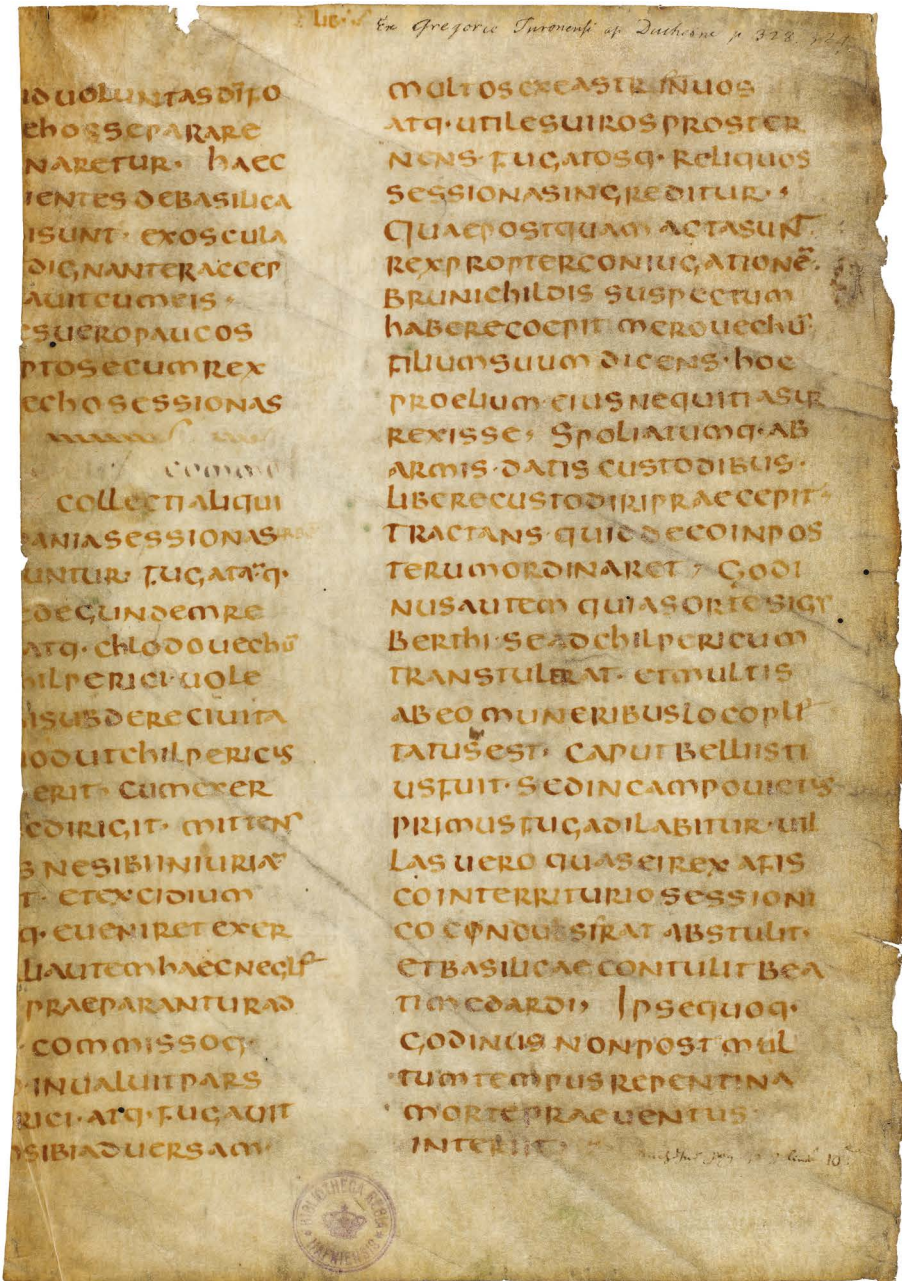 LIB
Ex Gregorio Turonensi ap Duchesne p 328
ID UOLUNTAS DI FO
EHOS SEPARARE
NARETUR · HAEC
IENTES DE BASILICA
ISUNT · EXOSCULA
DIGNANTER ACCEP
AUIT CUM EIS ·
ES UERO PAUCOS
PTO SECUM REX
ECHO SESSIONAS
COLLECTI ALIQUI
ANIA SESSIONAS
UNTUR · FUGATAQ·
EDEGUNDEM RE
ATQ · CHLODOUECHŪ
HILPERICI · UOLE
ISUBDERE CIUITA
IOD UT CHILPERICUS
ERIT · CUM EXER
E DIRIGIT · MITTENS
S NE SIBI INIURIAE
T · ET EXCIDIUM
Q · EUENIRET EXER
LI AUTEM HAEC NEGLE
PRAEPARANTUR AD
COMMISSOQ·
INUALUIT PARS
RICI · ATQ · FUGAUIT
SIBI ADUERSAM·
MULTOS EX EA STRENUOS
ATQ · UTILES UIROS PROSTER
NENS · FUGATOSQ · RELIQUOS
SESSIONAS INGREDITUR ·
QUAE POSTQUAM ACTA SUNT
REX PROPTER CONIUGATIONĒ ·
BRUNICHILDIS SUSPECTUM
HABERE COEPIT MEROUECHŪ
FILIUM SUUM DICENS · HOC
PROELIUM EIUS NEQUITIA SUR
REXISSE, SPOLIATUMQ · AB
ARMIS · DATIS CUSTODIBUS ·
LIBERE CUSTODIRI PRAECEPIT ·
TRACTANS · QUID DE CO IN POS
TERUM ORDINARET, GODI
NUS AUTEM QUI A SORTE SIGY
BERTHI · SE AD CHILPERICUM
TRANSTULERAT · ET MULTIS
AB EO MUNERIBUS LOCOPLE
TATUS EST · CAPUT BELLI ISTI
US FUIT · SED IN CAMPO UICTUS
PRIMUS FUGA DILABITUR · UIL
LAS UERO QUAS EI REX A FIS
CO IN TERRITURIO SESSIONI
CO CONDUSSERAT ABSTULIT ·
ET BASILICAE CONTULIT BEA
TI MEDARDI, IPSE QUOQ·
GODINUS NON POST MUL
TUM TEMPUS REPENTINA
MORTE PRAEUENTUS
INTERIIT ·
BIBLIOTHECA REGIA HAFNIENSIS